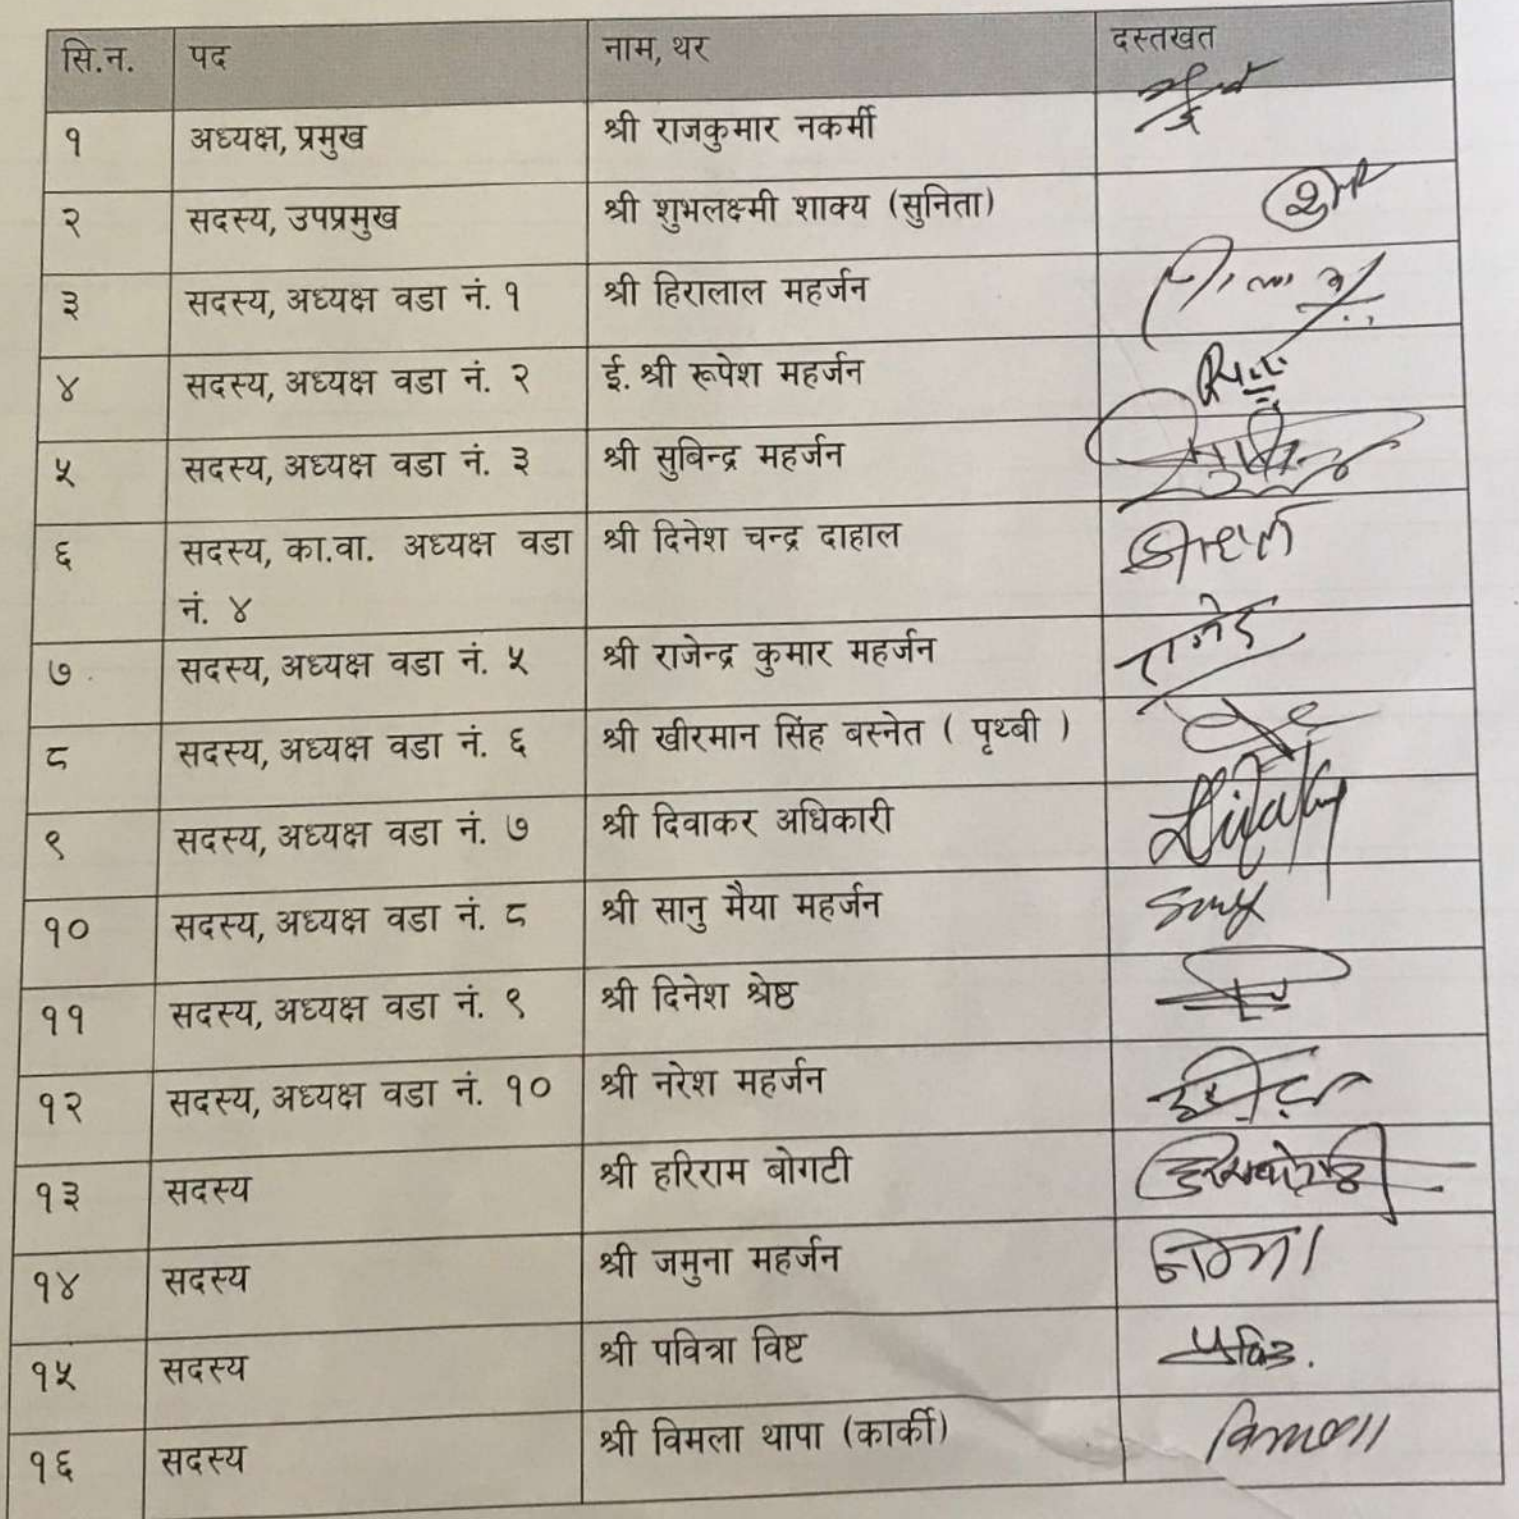 सि.न. पद नाम, थर दस्तखत
१ अध्यक्ष, प्रमुख श्री राजकुमार नकर्मी
२ सदस्य, उपप्रमुख श्री शुभलक्ष्मी शाक्य (सुनिता)
३ सदस्य, अध्यक्ष वडा नं. १ श्री हिरालाल महर्जन
४ सदस्य, अध्यक्ष वडा नं. २ ई. श्री रूपेश महर्जन
५ सदस्य, अध्यक्ष वडा नं. ३ श्री सुबिन्द्र महर्जन
६ सदस्य, का.वा. अध्यक्ष वडा श्री दिनेश चन्द्र दाहाल
नं. ४
७ सदस्य, अध्यक्ष वडा नं. ५ श्री राजेन्द्र कुमार महर्जन
८ सदस्य, अध्यक्ष वडा नं. ६ श्री खीरमान सिंह बस्नेत ( पृथ्बी )
९ सदस्य, अध्यक्ष वडा नं. ७ श्री दिवाकर अधिकारी
१० सदस्य, अध्यक्ष वडा नं. ८ श्री सानु मैया महर्जन
११ सदस्य, अध्यक्ष वडा नं. ९ श्री दिनेश श्रेष्ठ
१२ सदस्य, अध्यक्ष वडा नं. १० श्री नरेश महर्जन
१३ सदस्य श्री हरिराम बोगटी
१४ सदस्य श्री जमुना महर्जन
१५ सदस्य श्री पवित्रा विष्ट
१६ सदस्य श्री विमला थापा (कार्की)